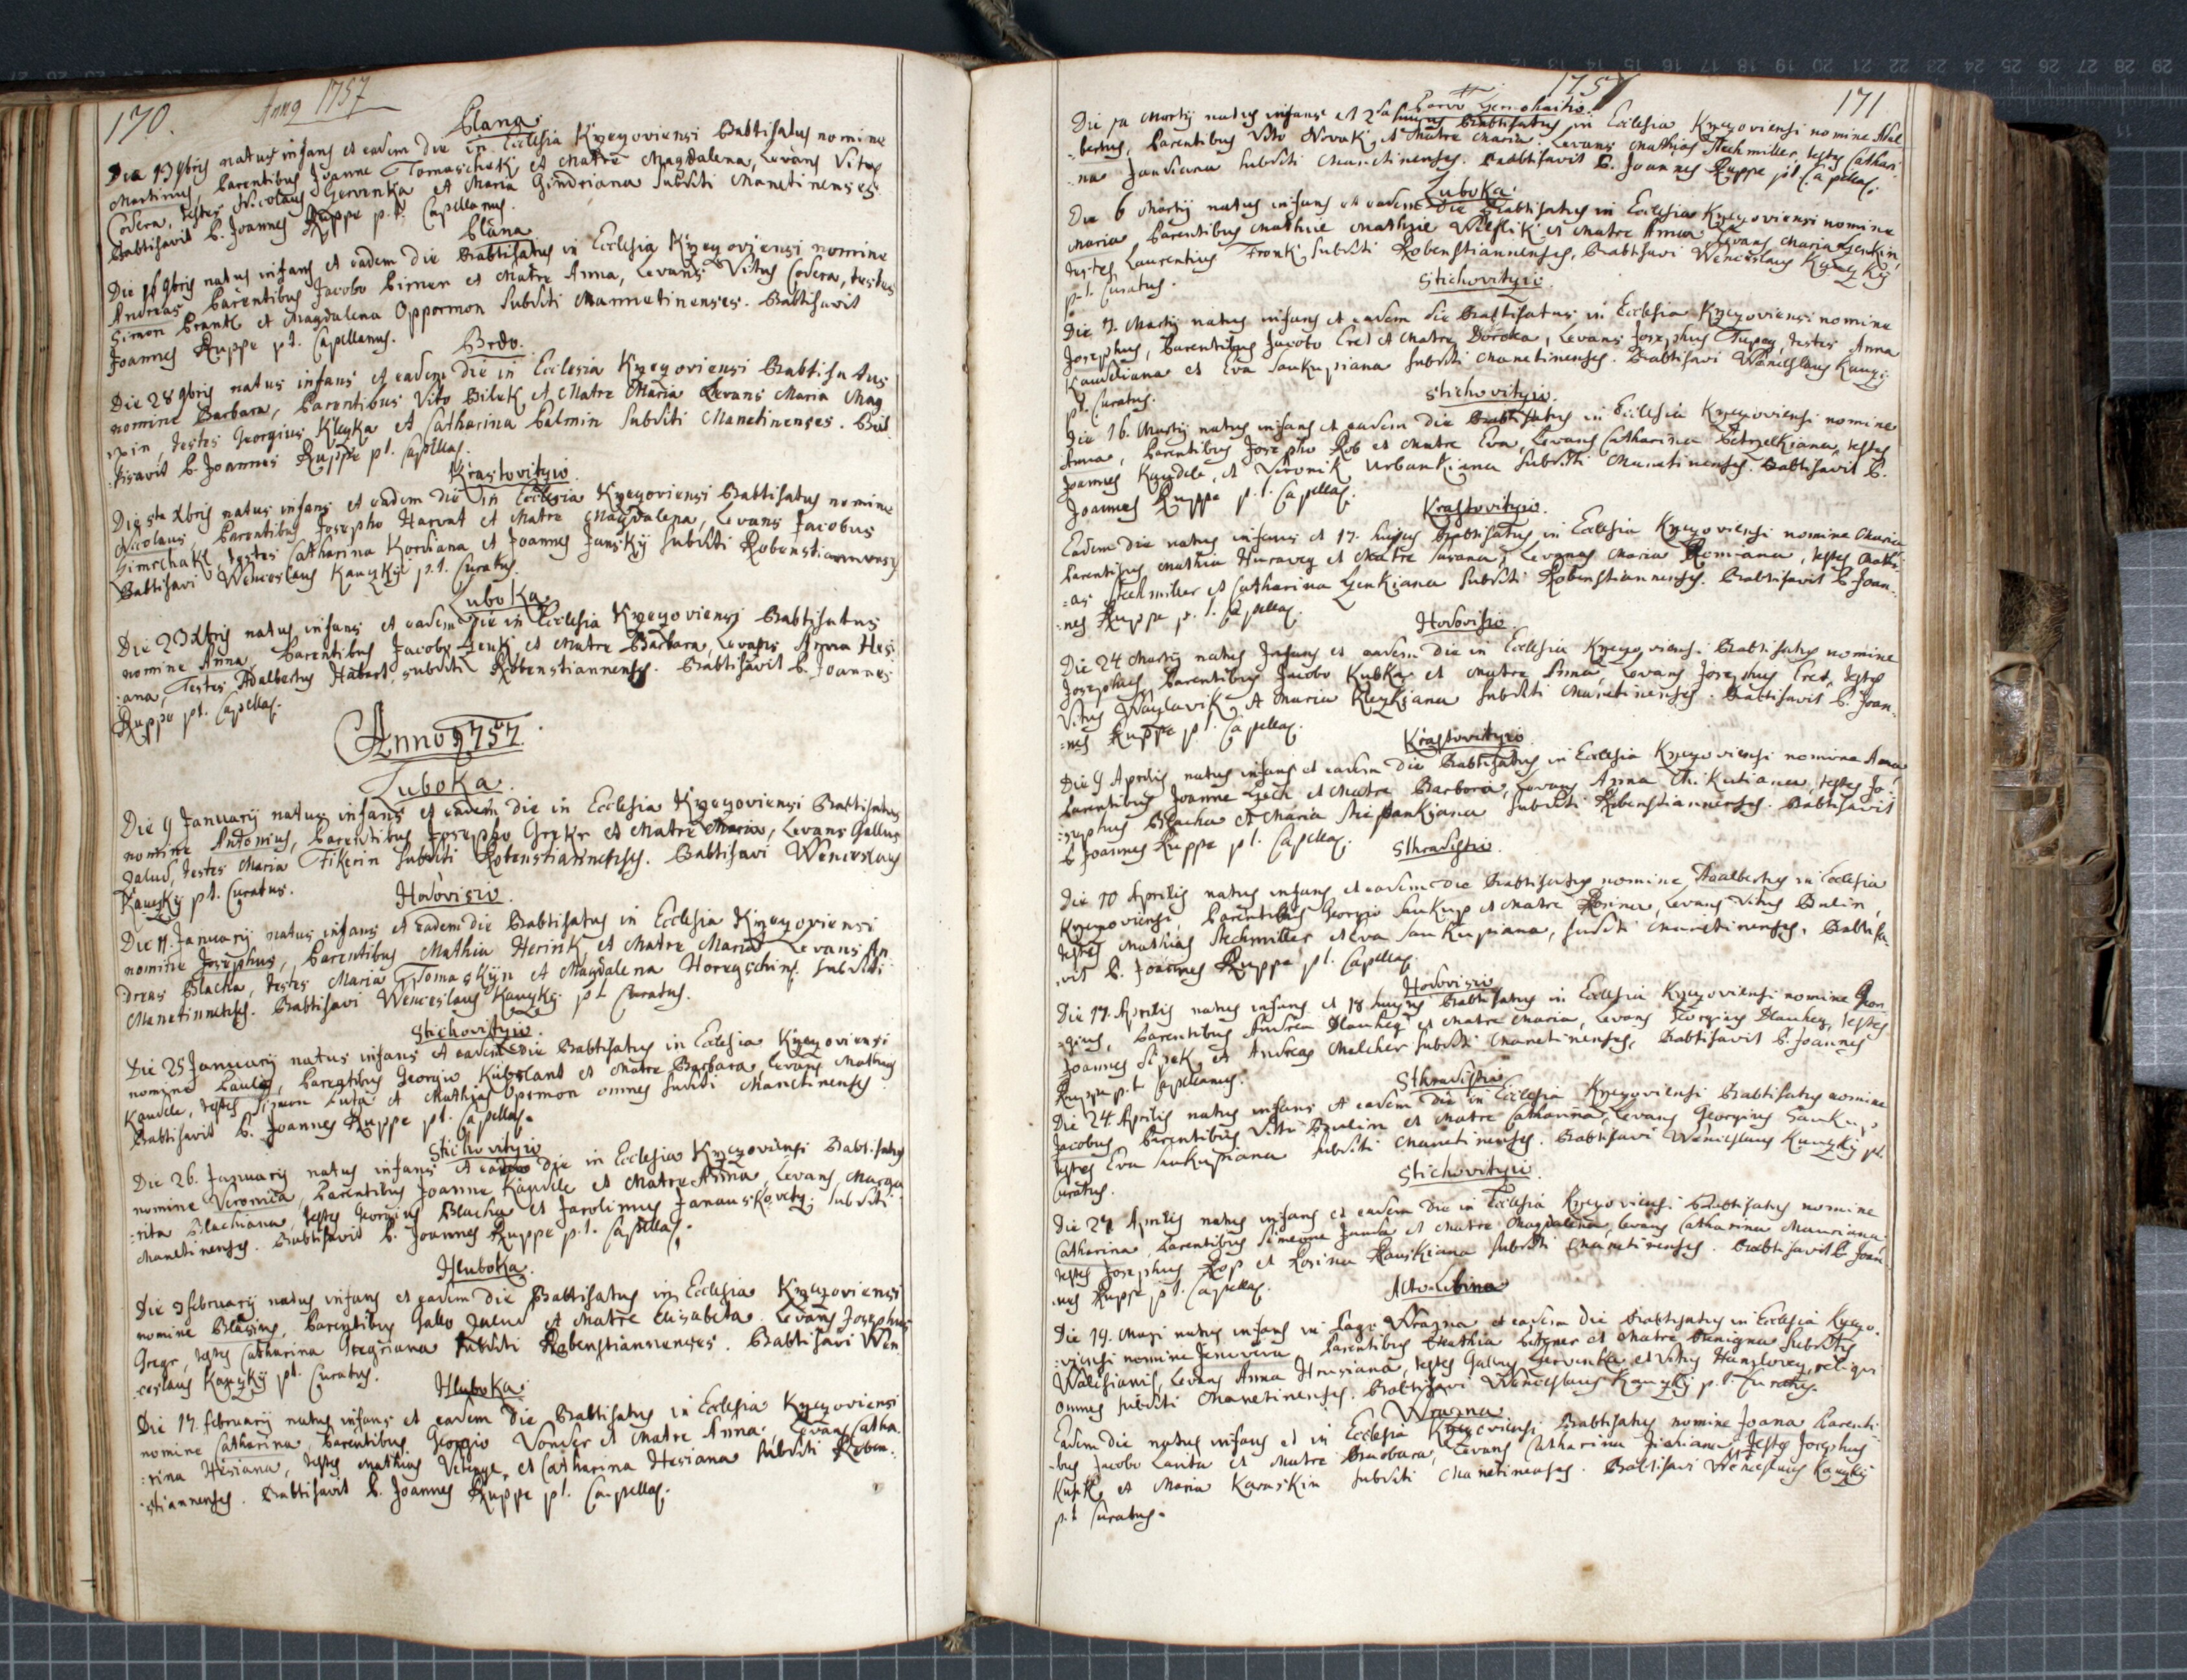 170. Anno 1757
Plana.
Die 13 9bris natus infans et eadem die in Ecclesia Kżeżoviensi Babtisatus nomine
Martinus, Parentibus Joanne Tomaschek et Matre Magdalena, Levans Vitus
Codera, testes Nicolaus Gervenka et Maria Gindriana Subditi Manetinenses
Babtisavit P. Joannes Ruppe p.t. Capellanus.
Plana
Die natus infans et eadem die Babtisatus in Ecclesia Kżeżoviensi nomine
Andreas Parentibus Jacobo Pirner et Matre Anna, Levans Vitus Codera, testes
Simon Prantl et Magdalena Oppormon Subditi Mannetinenses. Babtisavit
Joannes Ruppe pt. Capellanus.
Brdo.
Die 28 9bris natus infans et eadem die in Ecclesia Kżeżoviensi Babtisatus
nomine Barbara, Parentibus Vito Bilek et Matre Maria Levans Maria Mag
testes Georgius et Catharina Palmin Subditi Manetinenses. Bab
tisavit P. Joannes Ruppe pt. Capellas.
Krastovityio.
Die 5ta Xbris natus infans et eadem die in Ecclesia Kżeżoviensi Babtisatus nomine
Nicolaus Parentibus Josepho Harvat et Matre Magdalena, Levans Jacobus
Simschakl, testes Catharina Kordiana et Joannes Jansky Subditi
Babtisavi Wenceslaus Kaużky p.t. Curatus.
Luboka
Die 23 Xbris natus infans et eadem die in Ecclesia Kżeżoviensi Babtisatus
nomine Anna, Parentibus Jacobo Zenk et Matre Barbara, Levans Anna Hes
:iana, Testes Adalbertus Habart subditi Robenstiannenses. Babtisavit P. Joannes
Ruppe pt. Capellas.
Anno 1757.
Luboka.
Die 9 Januarij natus infans et eadem die in Ecclesia Kżeżoviensi Babtisatus
nomine Antonius, Parentibus Josepho Gregr et Matre Maria, Levans Gallus
Zalud, testes Maria Fikerin Subditi Robenstiannenses. Babtisavi Wenceslaus
Kaużky pt. Curatus.
Hodovisio.
Die 11. Januarij natus infans et eadem die Babtisatus in Ecclesia Kżeżoviensi
nomine Josephus, Parentibus Mathia Herink et Matre Maria Levans An
dreas Blacha, testes Maria Tomaskyn et Magdalena Subditi
Manetinenses. Babtisavi Wenceslaus Kaużky pt Curatus.
Stichovityio.
Die 25 Januarij natus infans et eadem die Babtisatus in Ecclesia Kżeżoviensi
nomine Paulus, Parentibus Georgio et Matre Barbara, Levans Mathias
Kaudele, testes Simon et Mathias Opormon omnes Subditi Manetinenses
Babtisavit P. Joannes Ruppe pt. Capellas.
Stichovityio
Die 26. Januarij natus infans et eadem die in Ecclesia Kżeżoviensi Babtisatus
nomine Veronica, Parentibus Joanne Kaudele et Matre Anna, Levans Marga
:rita Blachiana, testes Georgius Blacha et Subditi
Manetinenses. Babtisavit P. Joannes Ruppe p.t. Capellas.
Hluboka.
Die 3 february natus infans et eadem die Babtisatus in Ecclesia Kżeżoviensi
nomine Blasius, Parentibus Gallo et Matre Elisabeta. Levans Josephus
Gregr, testes Catharina Gregriana subditi Robenstiannenses. Babtisavi Wen
:ceslaus Kaużky pt. Curatus.
Hluboka.
Die 17. february natus infans et eadem die Babtisatus in Ecclesia Kżeżoviensi
nomine Catharina, Parentibus Georgio et Matre Anna, Levans Catha
:rina Hesiana, testes Mathias et Catharina Hesiana subditi Roben:
:stiannenses. Babtisavit P. Joannes Ruppe pt. Capellas.
1757 171
Die Martij natus infans et huius Babtisatus in Ecclesia Kżeżoviensi nomine Adal
:bertus, Parentibus Vito Novak, et Matre Maria. Levans Mathias Stechmiller, testes Cathari:
:na Jandiana Subditi Manetinenses. Babtisavit P. Joannes Ruppe pt. Capellas.
Luboka.
Die 6 Martij natus infans et eadem die Babtisatus in Ecclesia Kżeżoviensi nomine
Maria Parentibus Mathia et Matre Anna Levans Maria Zenkin,
testes Laurentius Fronk, Subditi Robenstiannenses, Babtisavi Wenceslaus Kaużky
p.t. Curatus.
Stichovityio.
Die Martij natus infans et eadem die Babtisatus in Ecclesia Kżeżoviensi nomine
Josephus, Parentibus Jacobo Cred et Matre Dorota, Levans Josephus testes Anna
Kaudeliana et Eva Saukupiana Subditi Manetinenses. Babtisavi Wenceslaus Kaużky
pt. Curatus.
Stichovityio.
Die 16. Martij natus infans et eadem die Babtisatus in Ecclesia Kżeżoviensi nomine
Anna, Parentibus Josepho Rob et Matre Eva, Levans Catharina Petrzelkiana, testes
Joannes Kaudele, et Veronik Urbankiana Subditi Manetinenses. Babtisavit P.
Joannes Ruppe p.t. Capellas.
Krastovityio.
Eadem die natus infans et 17. huius Babtisatus in Ecclesia Kżeżoviensi nomine Maria
Parentibus Mathia et Matre Susana, Levans Maria testes Mathi
:as Stechmiller et Catharina Zenkiana Subditi Robenstiannenses. Babtisavit P. Joan:
:nes Ruppe p.t. Capellas.
Hodovisio.
Die 24 Martij natus infans et eadem die in Ecclesia Kżeżoviensi Babtisatus nomine
Josephus, Parentibus Jacobo Kubka et Matre Anna, Levans Josephus Cred, testes
Vitus Wazlavik, et Maria Subditi Manetinenses. Babtisavit P. Joan:
:nes Ruppe pt. Capellas.
Krastovityio.
Die 9 Aprilis natus infans et eadem die Babtisatus in Ecclesia Kżeżoviensi nomine Anna
Parentibus Joanne et Matre Barbora, Levans Anna testes Jo:
:sephus Blacha et Maria Stiepankiana Subditi Robenstiannenses. Babtisavit
P. Joannes Ruppe pt. Capellas.
Sthradistio.
Die 10 Aprilis natus infans et eadem die Babtisatus nomine Adalbertus in Ecclesia
Kżeżoviensi, Parentibus Georgio Saukup et Matre Rosina, Levans Vitus Bulin,
testes Mathias Stechmiller, et Eva Saukupiana, subditi Manetinenses, Babtisa
:vit P. Joannes Ruppe pt. Capellas.
Hodovisio
Die 17. Aprilis natus infans et 18 huius Babtisatus in Ecclesia Kżeżoviensi nomine Geor
:gius, Parentibus Andrea et Matre Maria, Levans Georgius testes
Joannes et Andreas Melcher Subditi Manetinenses, Babtisavit P. Joannes
Ruppe p.t. Capellanus.
Sthradistio
Die 24 Aprilis natus infans et eadem die in Ecclesia Kżeżoviensi Babtisatus nomine
Jacobus, Parentibus Vito Bulin et Matre Catharina, Levans Georgius Saukup
testes Eva Saukupiana subditi Manetinenses. Babtisavi Wenceslaus Kaużky pt.
Curatus.
Stichovityio.
Die Aprilis natus infans et eadem die in Ecclesia Kżeżoviensi Babtisatus nomine
Catharina, Parentibus Simeone Janda et Matre Magdalena, Levans Catharina Mauriana
testes Josephus Rop et Rosina Subditi Manetinenses. Babtisavit P. Joan
:nes Ruppe pt. Capellas.
Alto-Libina
Die 19. Maji natus infans in Pago Wrazna et eadem die Babtisatus in Ecclesia Kżeżo:
:viensi nomine Jenoveva Parentibus Mathia et Matre Benigna Subditus
Levans Anna testes Gallus Gervenka et Vitus reliqui
omnes subditi Manetinenses. Babtisavi Wenceslaus Kaużky p.t. Curatus.
Wrazna
Eadem die natus infans et in Ecclesia Kżeżoviensi Babtisatus nomine Joana Parenti
:bus Jacobo Lanta et Matre Barbara, Levans Catharina testes Josephus
et Maria Karaskin Subditi Manetinenses. Babtisavi Wenceslaus Kaużky
p.t Curatus.